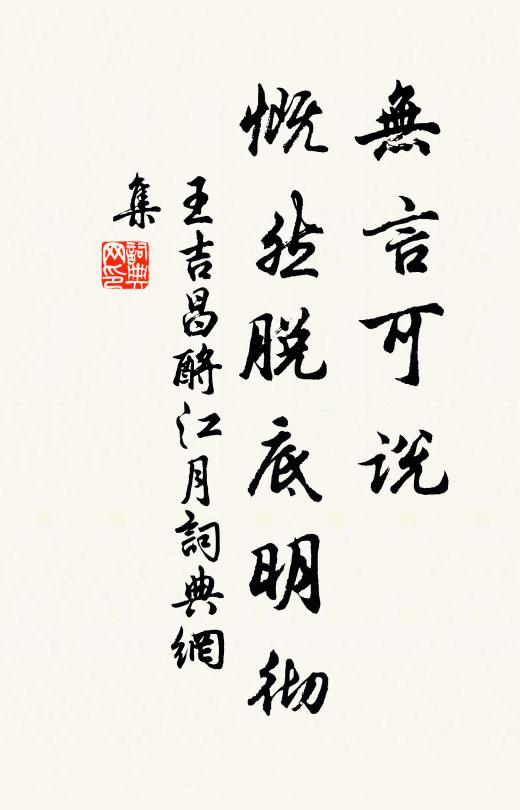 無言可说
慨然脱底明彻
王吉昌酹江月詞典網
集
詞典
网印